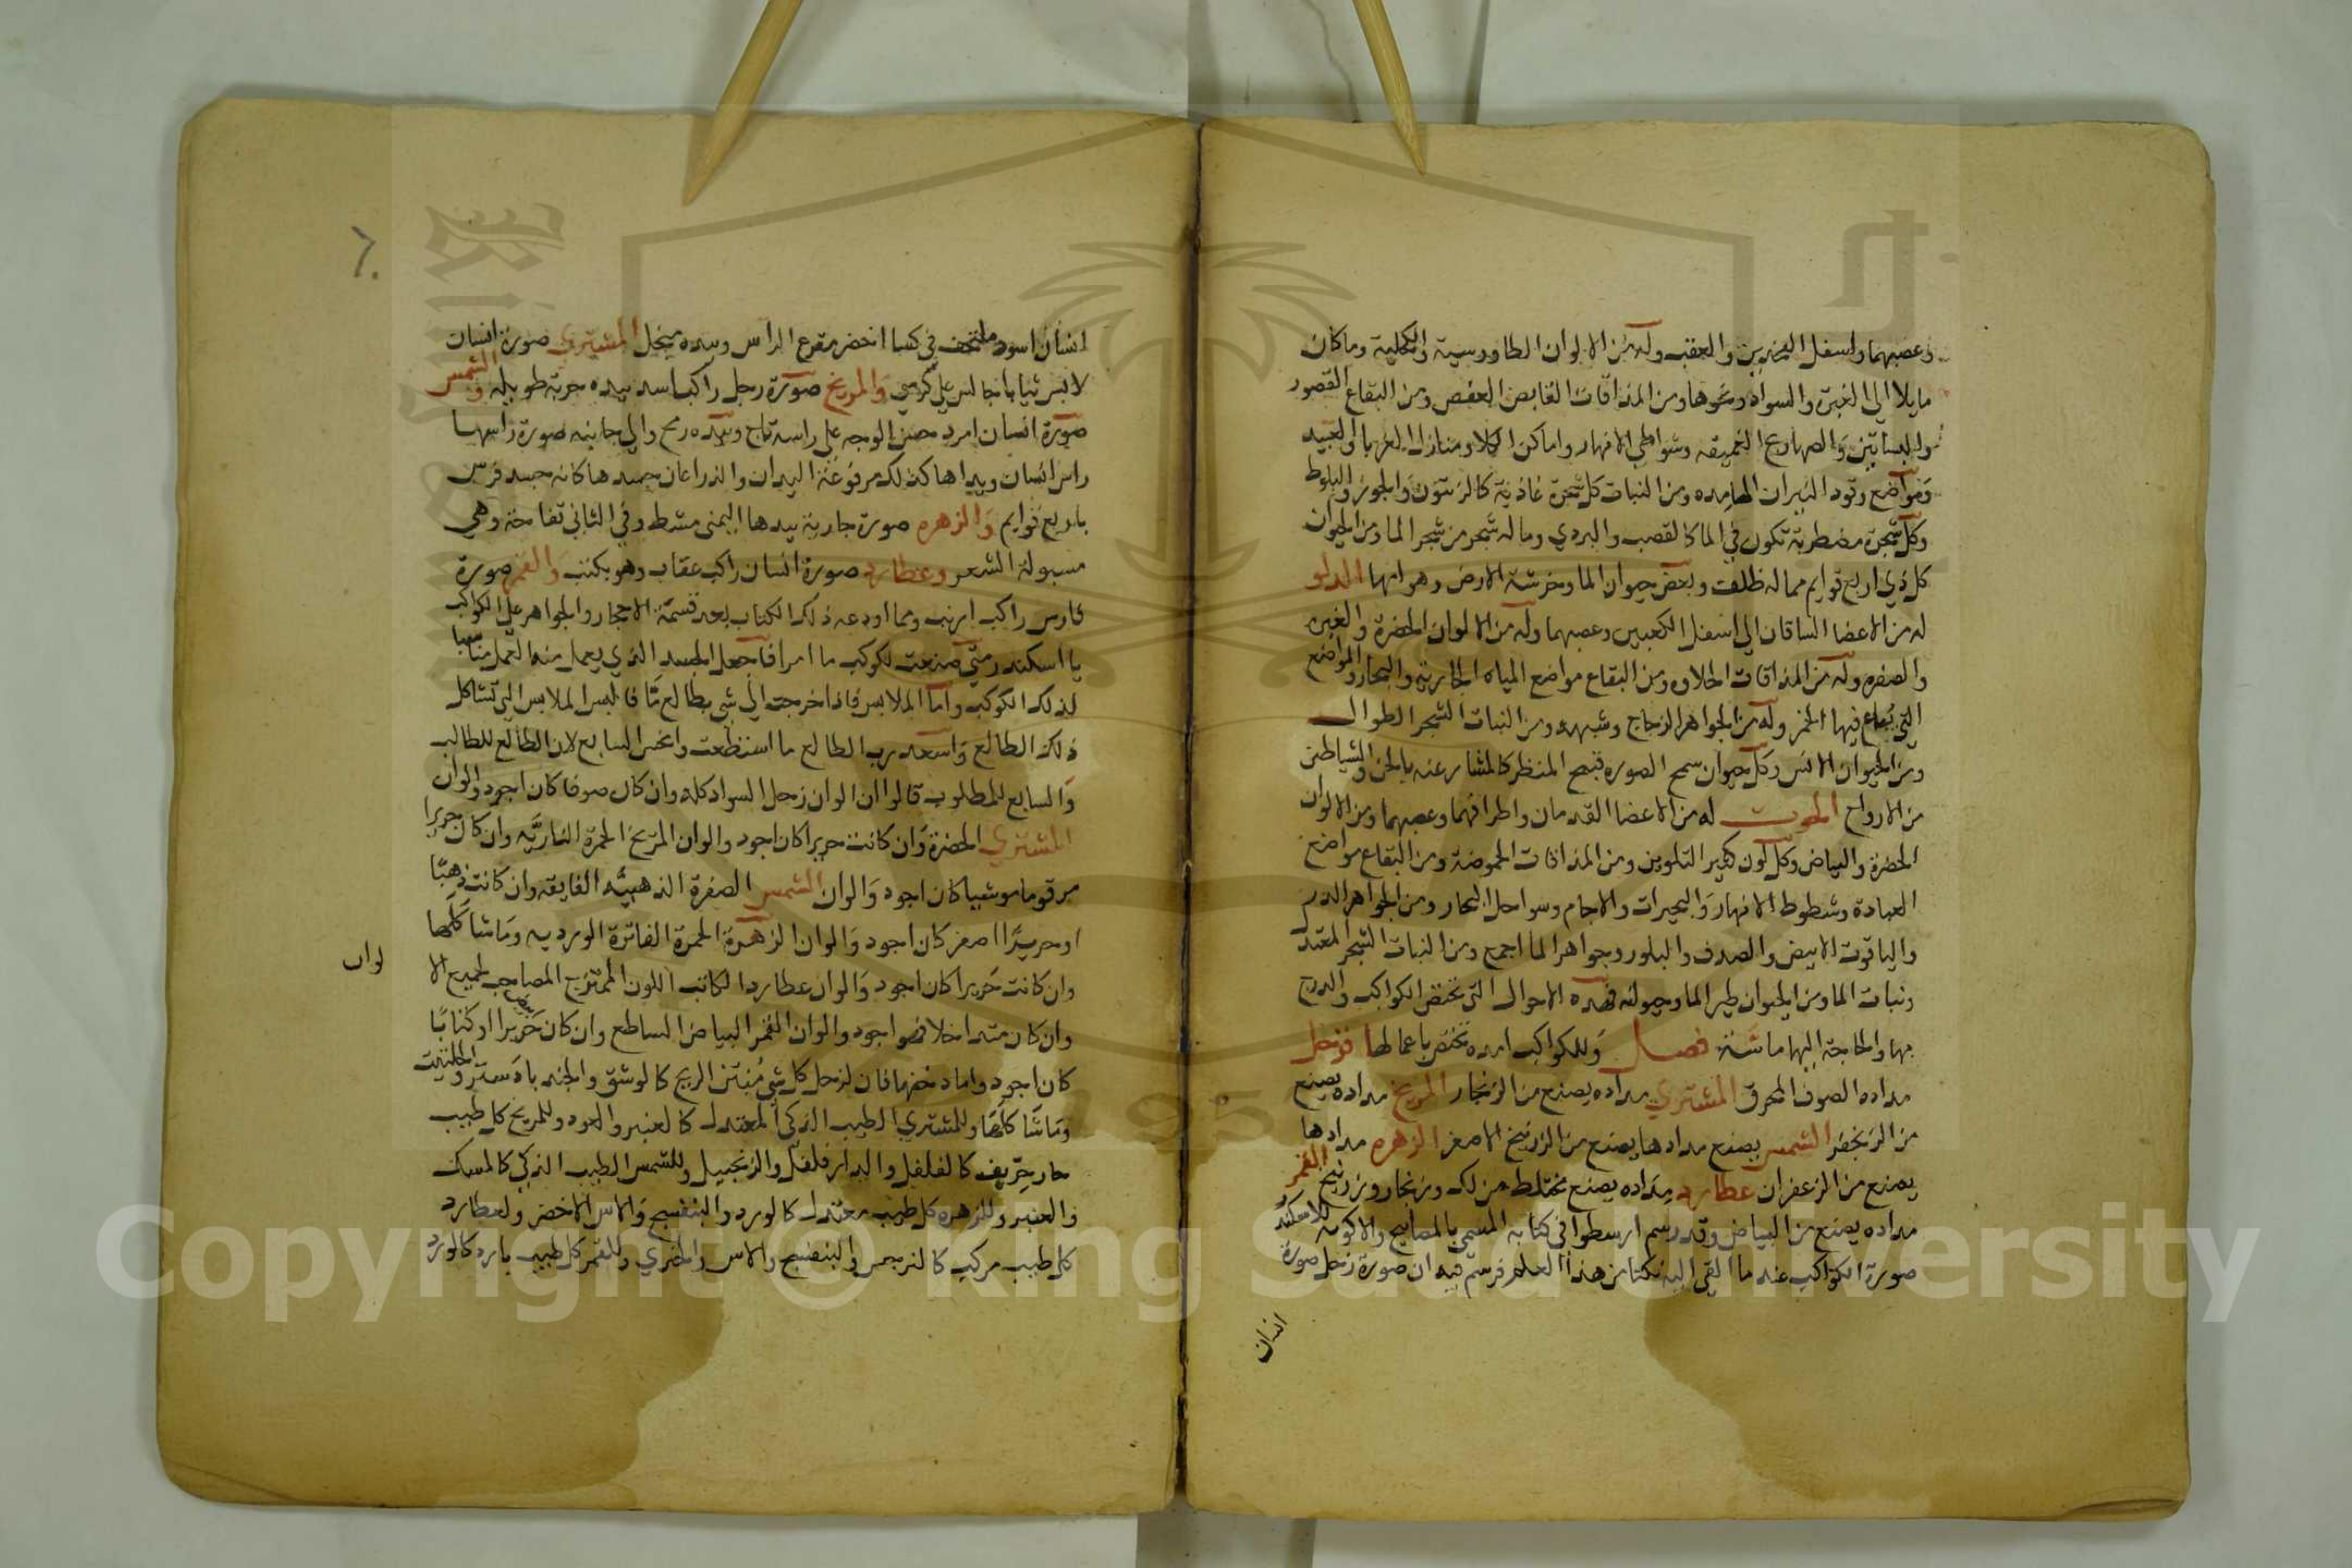 وعصبهما واسفل الفخذين والعقب وله من الالوان الطاووسية والكحلية وما كان
مايلا الى الغبرة والسواد ونحوها ومن المذاقات القابض العفص ومن البقاع القصور
والبساتين والصهاريج العميقه وشواطي الانهار واماكن الكلا ومنازل الغربا والعبيد
ومواضع وقود النيران الهامده ومن النبات كل شجرة غاذية كالزيتون والجوز والبلوط
وكل شجرة مضطربة تكون في الما كالقصب والبردي وما له شجر من شجر الما ومن الحيوان
كل ذي اربع قوايم مما له ظلف وبعض حيوان الما وخرشة الارض وهوامها الدلو
له من الاعضا الساقان الى اسفل الكعبين وعصبهما وله من الالوان الخضرة والغبره
والصفره وله من المذاقات الحلاوه ومن البقاع مواضع المياه الجارية والبحار والمواضع
التي يباع فيها الخمر وله من الجواهر الزجاج وشبهه ومن النبات الشجر الطوال
ومن الحيوان الانس وكل حيوان سمج الصوره قبيح المنظر كالمشار عنه بالجن والشياطين
من الارواح الحوت له من الاعضا القدمان واطرافهما وعصبهما ومن الالوان
الخضرة والبياض وكل لون كثير التلوين ومن المذاقات الحموضة ومن البقاع مواضع
العبادة وشطوط الانهار والبحيرات والاجام وسواحل البحار ومن الجواهر الدر
والياقوت الابيض والصدف والبلور وجواهر الما اجمع ومن النبات الشجر المعتدل
ونبات الما ومن الحيوان طير الما وحيوانه فهذه الاحوال التي تختص الكواكب والبروج
بها والحاجة اليها ماسة فصل وللكواكب امدة تختص باعمالها فزحل
مداده الصوف المحرق المشتري مداده يصنع من الزنجار المريخ مداده يصنع
من الزنجفر الشمس يصنع مدادها يصنع من الزرنيخ الاصفر الزهره مدادها
يصنع من الزعفران عطارد مداده يصنع مختلط من لك ومن زنجار ومن زرنيخ القمر
مداده يصنع من البياض وقد رسم ارسطوا في كتابه المسمى بالمصابيح والاكوية للاسكندر
صورة الكواكب عند ما القى اليه نكتا من هذا العلم فرسم فيه ان صورة زحل صورة
انسان
٦٠
انسان اسود ملتحف في كسا اخضر مقرع الراس وبيده منجل المشتري صورة انسان
لابس ثيابا جالس على كرسي والمريخ صورة رجل راكب اسد بيده حربة طويله والشمس
صورة انسان امرد حسن الوجه على راسه تاج وبيده رمح والى جانبه صورة راسها
راس انسان ويداها كذلك مرفوعة اليدان والذراعان جسدها كانه جسد فرس
باربع قوايم والزهره صورة جارية بيدها اليمنى مشط وفي الثاني تفاحة وهي
مسبولة الشعر وعطارد صورة انسان راكب عقاب وهو يكتب والقمر صورة
فارس راكب ارنب ومما اودعه ذلك الكتاب بعد قسمة الاحجار والجواهر على الكواكب
يا اسكندر متى صنعت لكوكب ما امرا فاجعل الجسد الذي يعمل منه العمل مناسبا
لذلك الكوكب واما الملابس فاذا خرجت الى شي بطالع مّا فالبس الملابس التي تشاكل
ذلك الطالع واسعد رب الطالع ما استطعت وانحس السابع لان الطالع للطالب
والسابع للمطلوب قالوا ان الوان زحل السواد كله وان كان صوفا كان اجود والوان
المشتري الخضرة وان كانت حريرا كان اجود والوان المريخ الحمرة الناريّه وان كان حريرا
مرقوما موشيا كان اجود والوان الشمس الصفرة الذهبيّه الفايقه وان كانت ذهبًا
او حريرًا اصفر كان اجود والوان الزهرة الحمرة الفاترة الورديه وما شاكلها
وان كانت حريرا كان اجود والوان عطارد الكاتب اللون الممتزج المصاحب لجميع الا
لوان
وان كان متداخلا فهو اجود والوان القمر البياض الساطع وان كان حريرا او كتابًا
كان اجود واما دخنها فان لزحل كل شي مُنتن الريح كالوشق والجندبادستر والحلتيت
وما شاكلها وللمشتري الطيب الذكى المعتدل كالعنبر والعود وللمريخ كل طيب
حار حرّيف كالفلفل والدار فلفل والزنجبيل وللشمس الطيب الذكي كالمسك
والعنبر وللزهره كل طيب معتدل كالورد والبنفسج والاس الاخضر ولعطارد
كل طيب مركب كالنرجس والبنفسج والاس والخيري وللقمر كل طيب بارد كالورد
Copyright © King Saud University